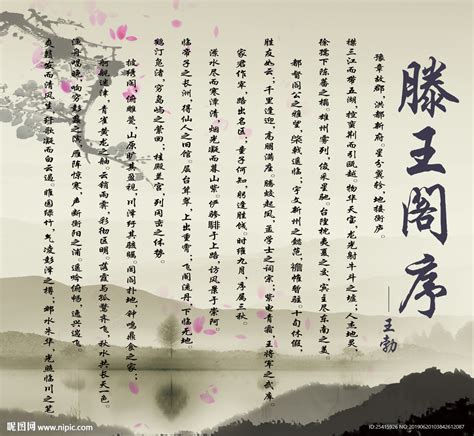 滕王阁序
——王勃
豫章故郡，洪都新府。星分翼轸，地接衡庐。
襟三江而带五湖，控蛮荆而引瓯越。物华天宝，龙光射牛斗之墟；人杰地灵，
徐孺下陈蕃之榻。雄州雾列，俊采星驰。台隍枕夷夏之交，宾主尽东南之美。
都督阎公之雅望，棨戟遥临；宇文新州之懿范，襜帷暂驻。十旬休假，
胜友如云；千里逢迎，高朋满座。腾蛟起凤，孟学士之词宗；紫电青霜，王将军之武库。
家君作宰，路出名区；童子何知，躬逢胜饯。时维九月，序属三秋。
潦水尽而寒潭清，烟光凝而暮山紫。俨骖騑于上路，访风景于崇阿。
临帝子之长洲，得仙人之旧馆。层台耸翠，上出重霄；飞阁流丹，下临无地。
鹤汀凫渚，穷岛屿之萦回；桂殿兰宫，列冈峦之体势。
披绣闼，俯雕甍，山原旷其盈视，川泽纡其骇瞩。闾阎扑地，钟鸣鼎食之家；
舸舰迷津，青雀黄龙之舳。云销雨霁，彩彻区明。落霞与孤鹜齐飞，秋水共长天一色。
渔舟唱晚，响穷彭蠡之滨；雁阵惊寒，声断衡阳之浦。遥吟俯畅，逸兴遄飞。
爽籁发而清风生，纤歌凝而白云遏。睢园绿竹，气凌彭泽之樽；邺水朱华，光照临川之笔。
昵图网 www.nipic.com
ID:25415926 NO:20190620103842612087